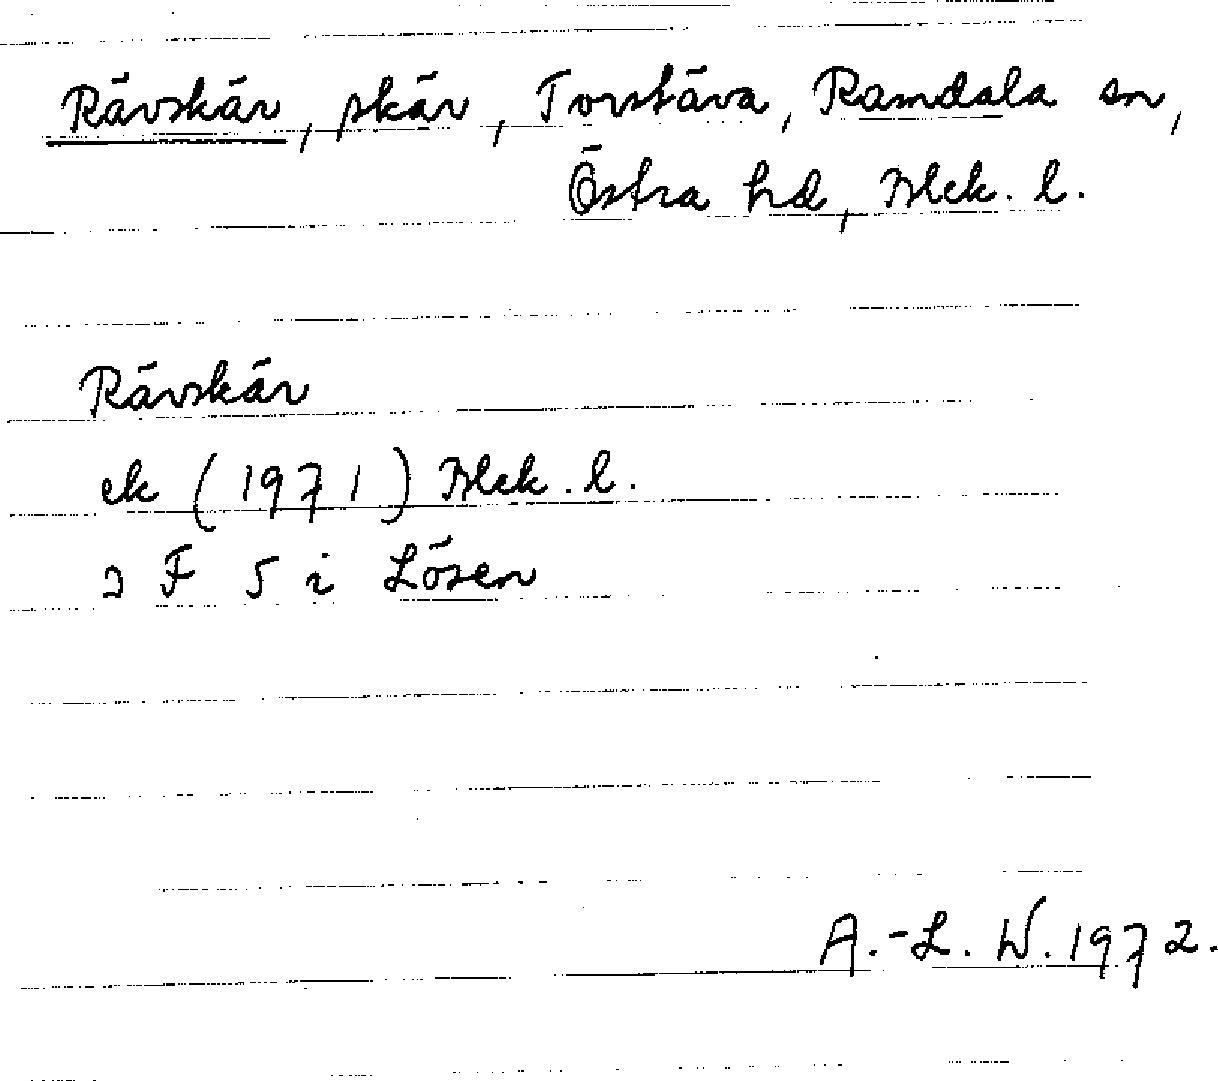 Rävskär, skär, Torstäva, Ramdala sn,
Östra hd, Blek. l.
Rävskär
ek (1971) Blek. l.
3 F 5 i Lösen
A.-L. W. 1972.